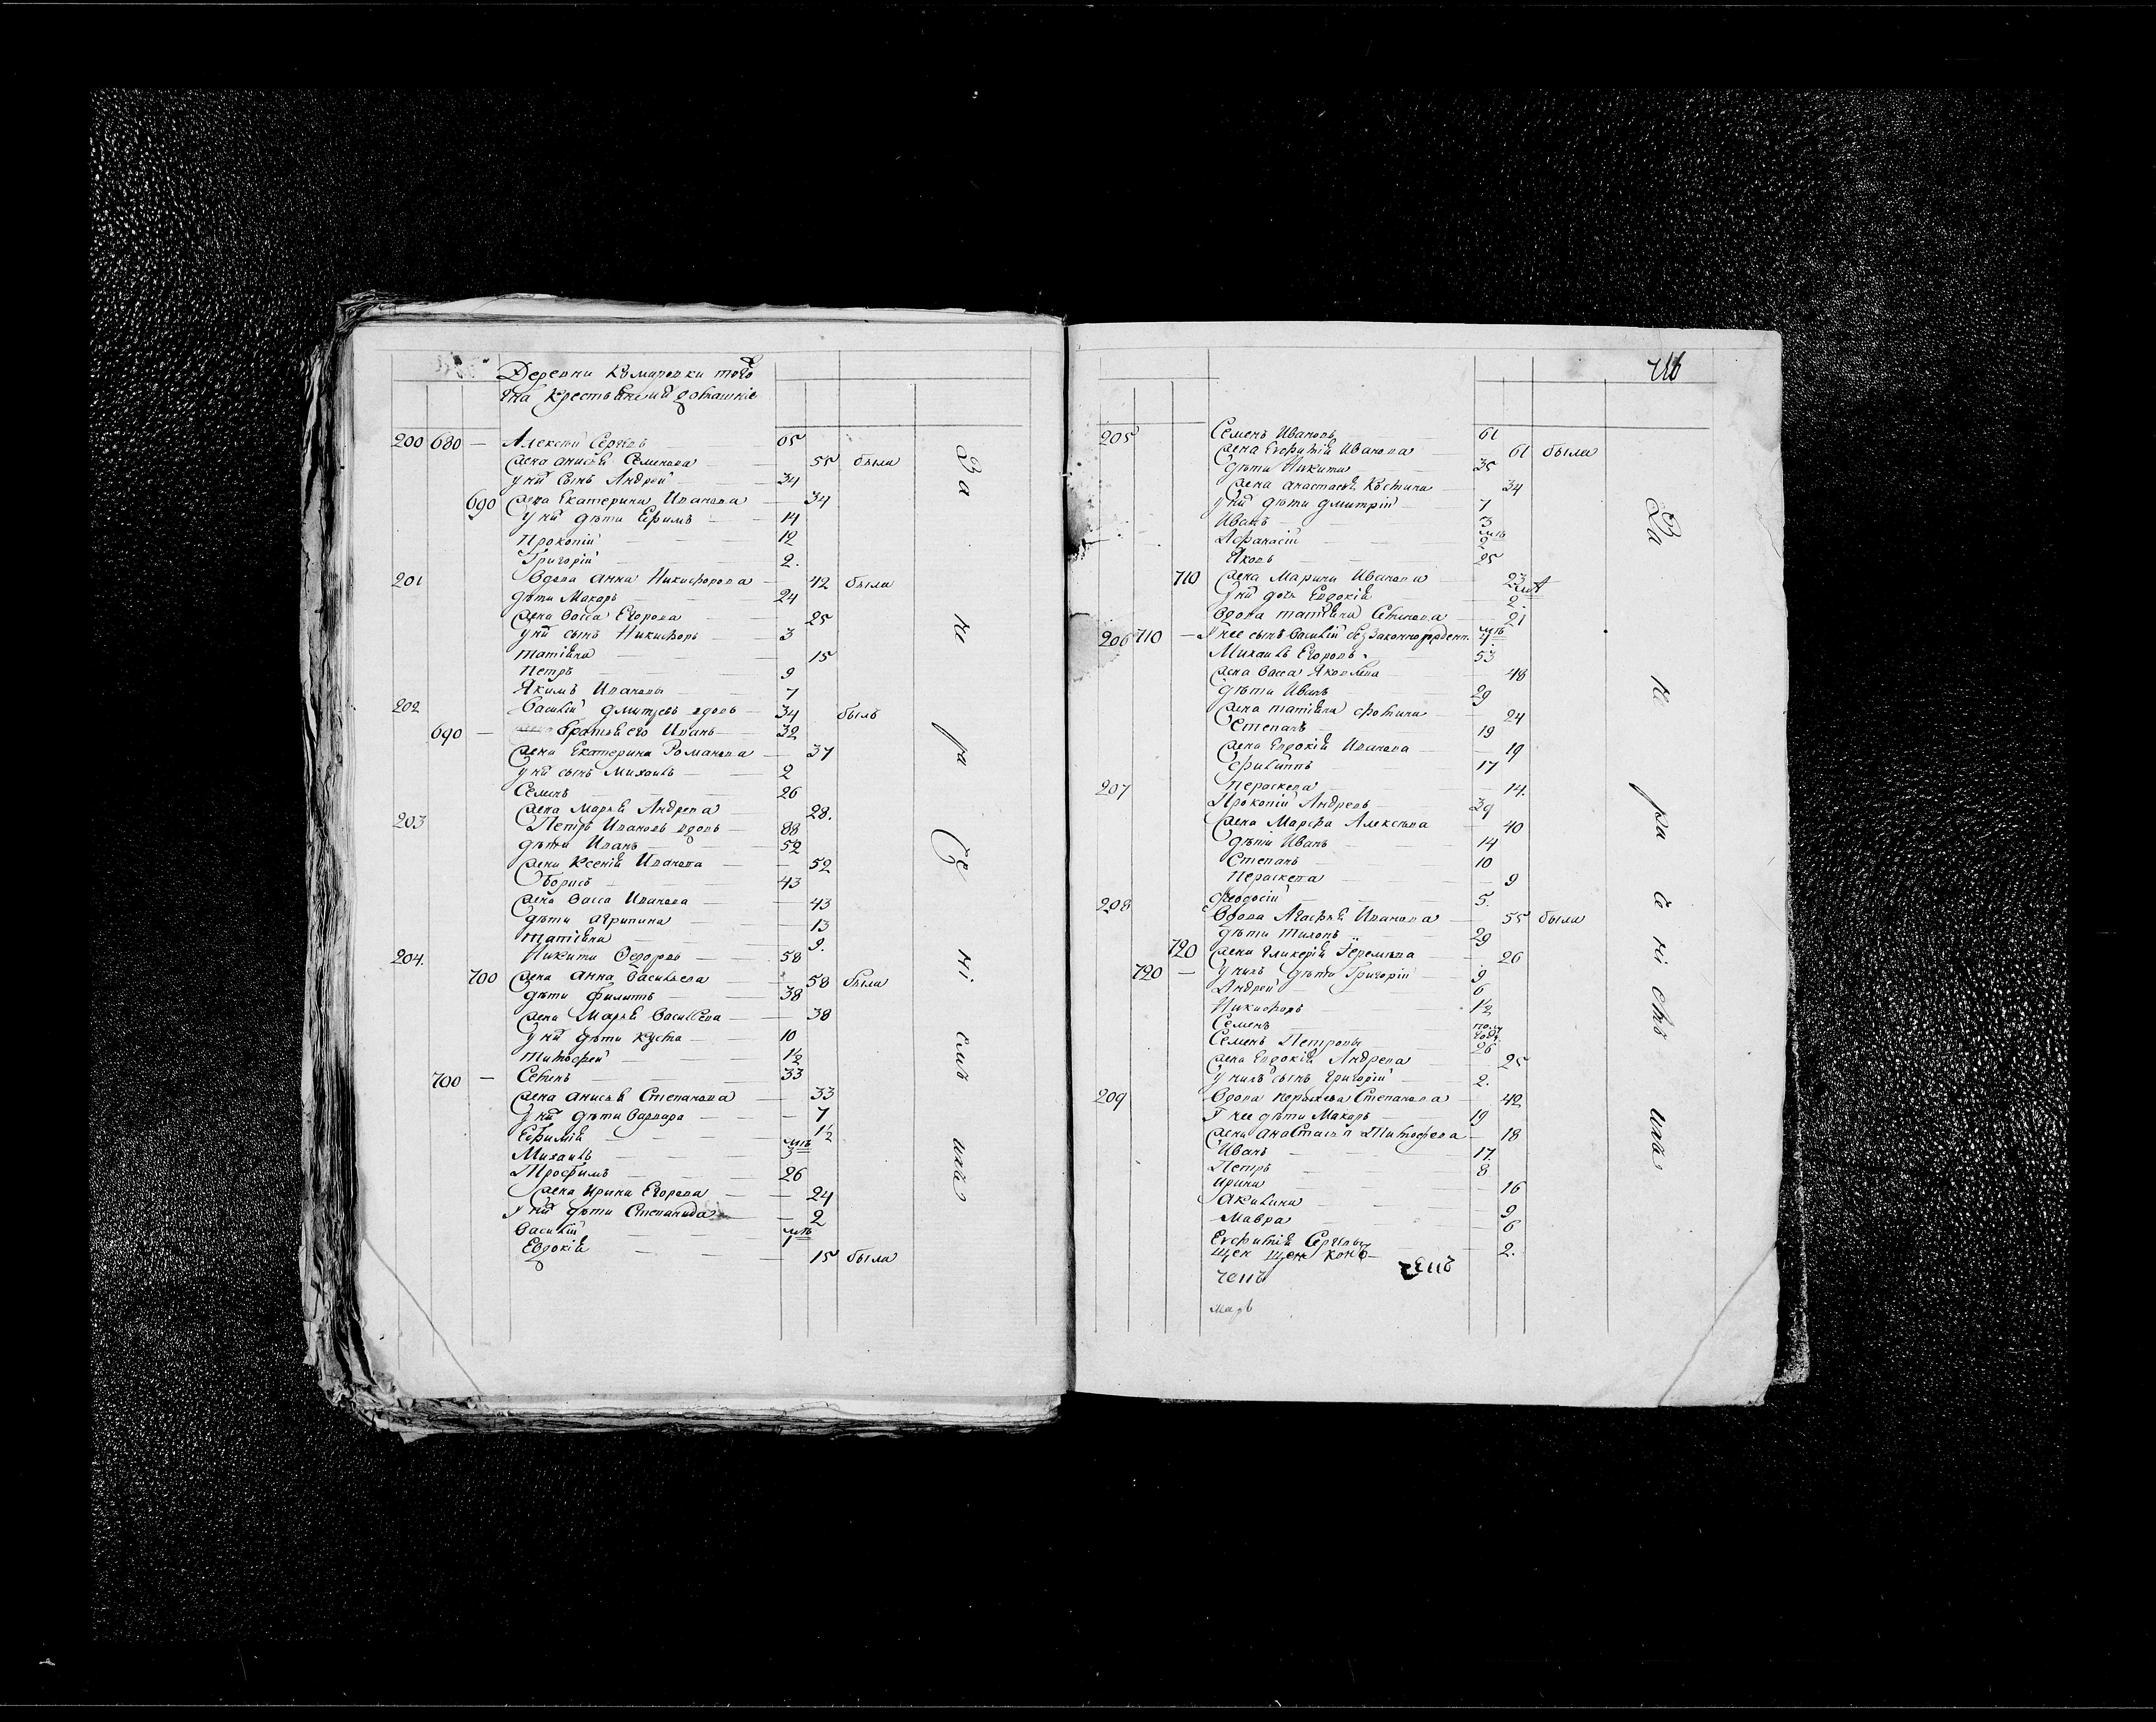 Деревни Комаровки того
яна крестьяне и домашние
200 680 — Алексей Сергеев 65
жена Анисья Семенова — 55 была
у них сынъ Андрей — 34
690 жена Екатерина Иванова — 34
у них дети Ефимъ — 14
Прокопий — 12
Григорий — 2.
201 Вдова Анна Никифорова — 42 была
дети Макаръ — 24
жена Васса Егорова — 25
у них сынъ Никифоръ — 3
Татиана — 15
Петръ — 9
Якимъ Ивановы — 7
202 Василий Дмитревъ вдовъ — 34 былъ
690 — братья его Иванъ — 32
жена Екатерина Романова — 37
у них сынъ Михаилъ — 2
Семенъ — 26
жена Марья Андрева — 28.
203 Петръ Ивановъ вдовъ — 88
дети Иванъ — 52
жена Ксения Иванова — 52
Борисъ — 43
жена Васса Иванова — 43
дети Агрипина — 13
Татиана — 9.
204. Никита Федоровъ — 58
700 жена Анна Васильева — 58 была
дети Филиппъ — 38
жена Марья Василева — 38
у них дети Кузма — 10
Тимофей — 1½
700 — Семенъ — 33
жена Анисья Степанова — 33
у них дети Варвара — 7
Ефимия — 1½
Михаилъ — 3
Трофимъ — 26
жена Ирина Егорова — 24
у них дети Степанида — 2
Василий — 1
Евдокия — 15 была
За не ра Е ні емъ ихъ
716
205 Семенъ Ивановъ 61
жена Евфимия Иванова 61 была
дети Никита 35
жена Анастасья Костина — 34
у них дети Дмитрий — 7
Иванъ — 3
Афанасий — 2
Яковъ — 25
710 жена Марина Иванова — 23
у них дочь Евдокия — 2.
вдова Татиана Семенова — 21
206 710 — у нее сынъ Василий без законнорожденн. 1
Михаилъ Егоровъ — 53
жена Васса Яковлева — 48
дети Иванъ — 29
жена Татиана Фотина — 24
Степанъ — 19
жена Евдокия Иванова — 19
Филиппъ — 17
207 Пераскева — 14.
Прокопий Андревъ — 39
жена Марфа Алексеева — 40
дети Иванъ — 14
Степанъ — 10
Пераскева — 9
208 Феодосий — 5.
Вдова Агафья Иванова — 55 была
дети Тихонъ — 29
720 жена Гликерия Еремеева — 26
720 — у нихъ дети Григорий — 9
Андрей — 6
Никифоръ — 1½
Семенъ — полу года
Семенъ Петровы — 26
жена Евдокия Андрева — 25
у нихъ сынъ Григорий — 2.
209 Вдова Пераскева Степанова — 42
у нее дети Макаръ — 19
жена Анастасья Тимофева — 18
Иванъ — 17.
Петръ — 8
Ирина — 16
Акилина — 9
Мавра — 6
Евфимия Сергеевы — 2.
За не ра че ні емъ ихъ